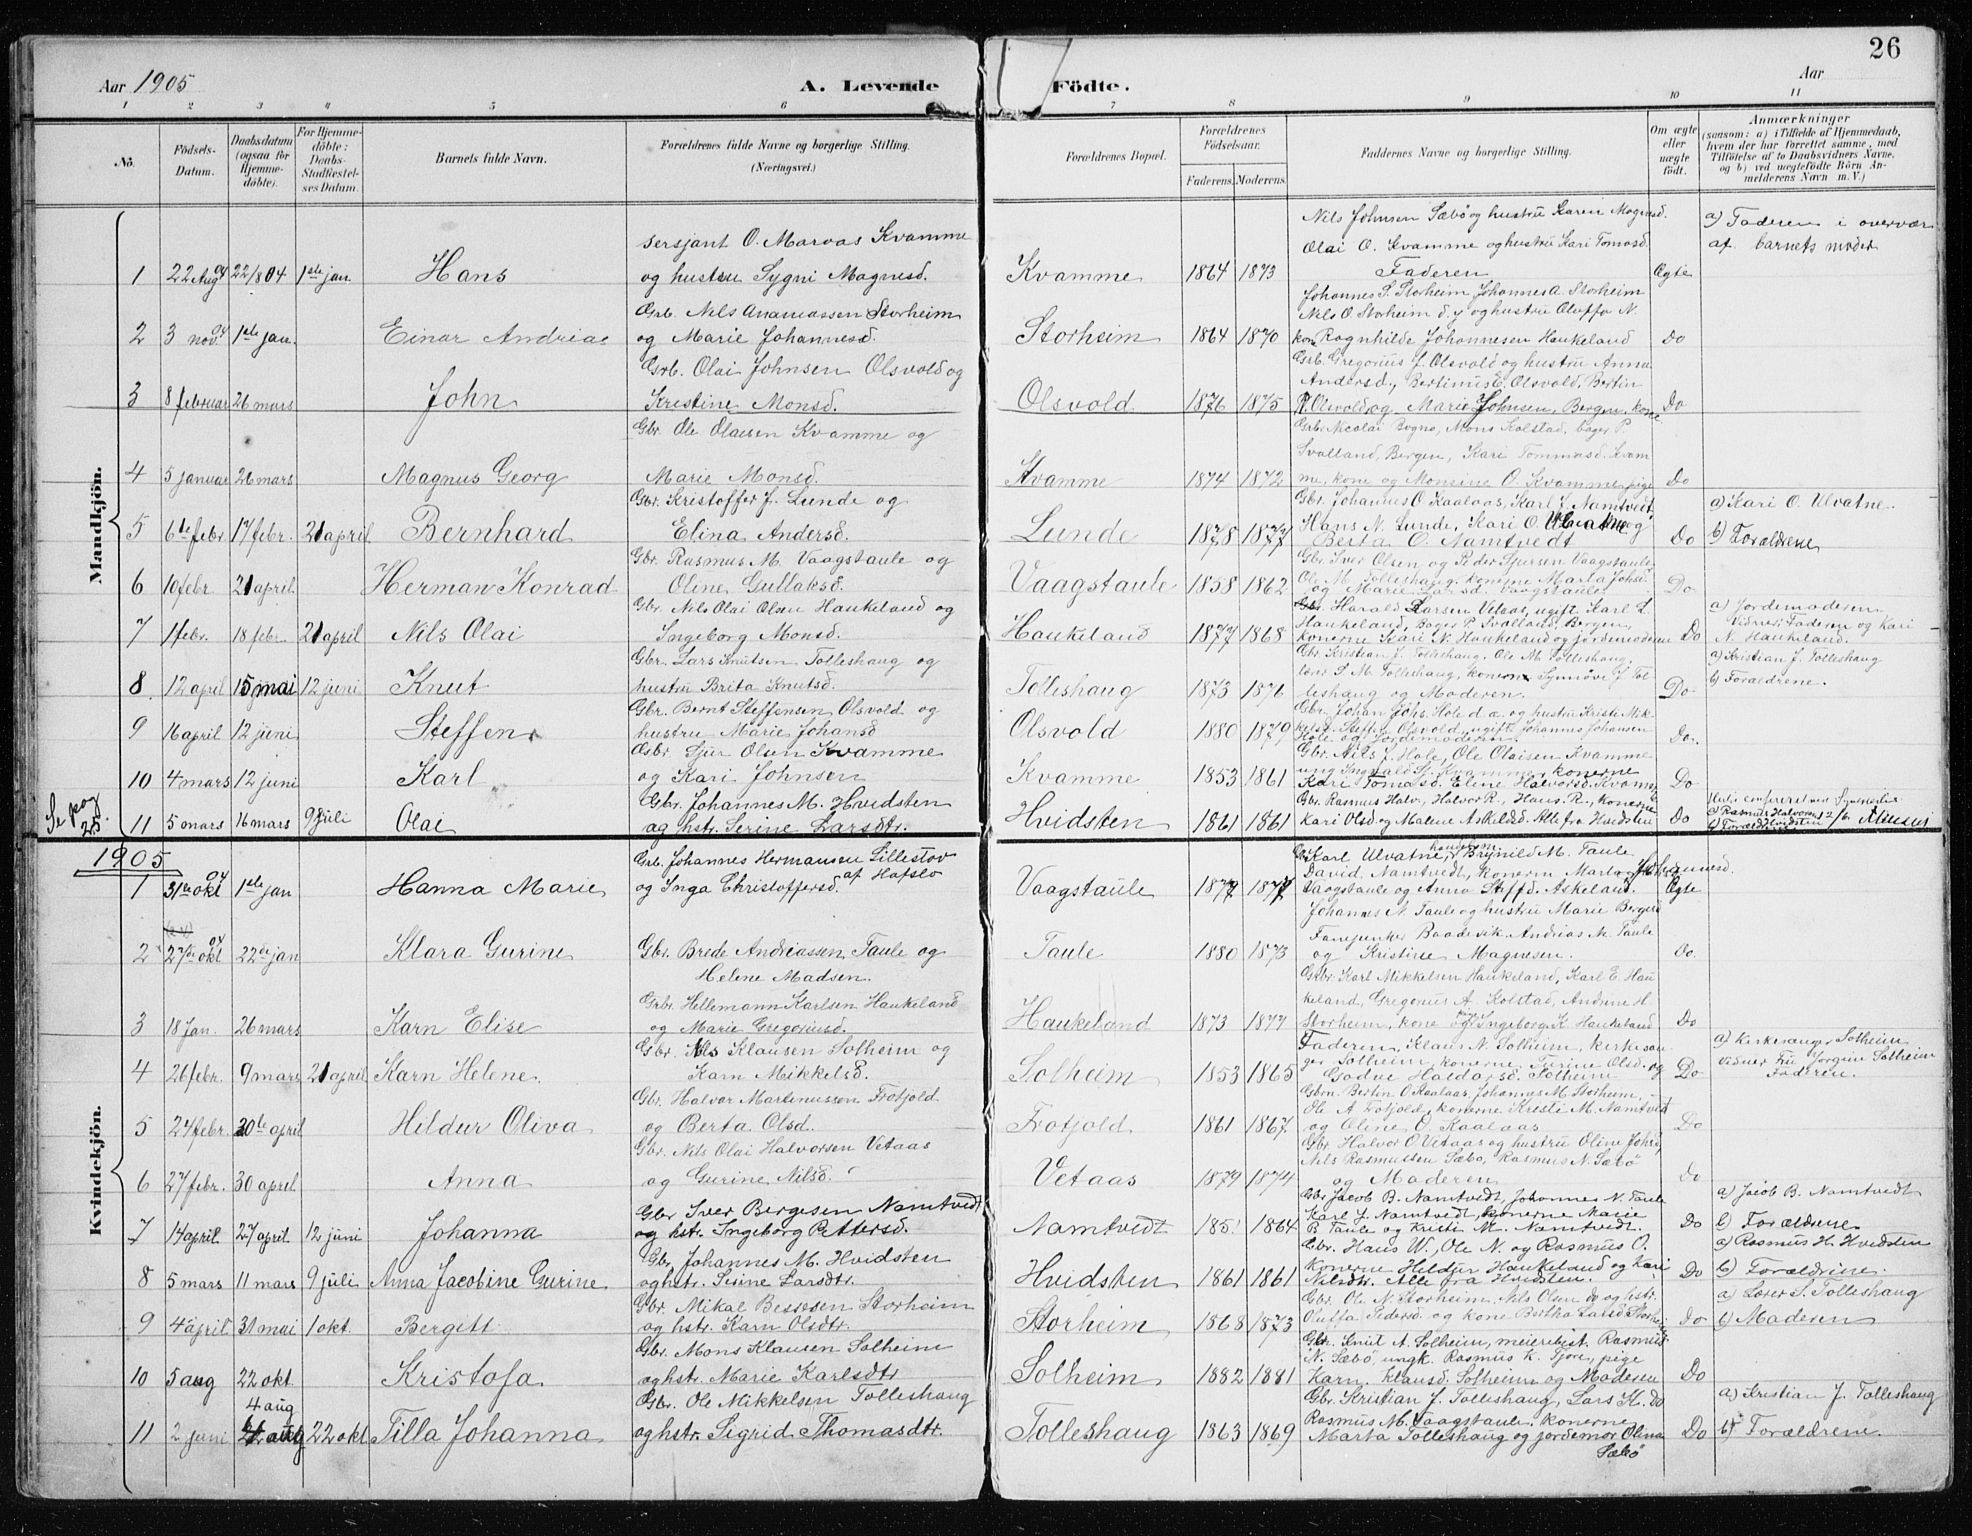 26
Aar 1905
A. Levende
Födte.
Aar
1 2 3 4 5 6 7 8 9 10 11
No.
Födsels-Datum.
Daabsdatum (ogsaa for Hjemme-döbte).
For Hjemme-döbte: Daabs-Stadfæstel-ses Datum.
Barnets fulde Navn.
Forældrenes fulde Navne og borgerlige Stilling. (Næringsvei.)
Forældrenes Bopæl.
Forældrenes Födselsaar.
Faderens. Moderens.
Faddernes Navne og borgerlige Stilling.
Om ægte eller uægte födt.
Anmærkninger (saasom: a) i Tilfælde af Hjemmedaab, hvem der har forrettet samme, med Tilföielse af to Daabsvidners Navne, og b) ved uægtefödte Börn An-melderens Navn m. V.)
Mandkjön.
Nils Johnsen Sæbö og hustru Karen Magnusd.
a) Faderen i overvær
sersjant O. Marvas Kvamme
Olai O. Kvamme og hustru Kari Tomasd.
af barnets moder
1 22 Aug 04 22/8 04 1ste jan. Hans og hustru Sygni Magnesd. Kvamme 1864 1873 Faderen Ægte
Grb. Nils Ananiassen Storheim
Johannes S. Storheim Johannes A. Storheim
Nils O. Storheim d. y og hustru Oluffa N.
2 3 nov. 04 1ste jan. Einar Andrias og Marie Johannesd. Storheim 1864 1870 kone Ragnhilde Johannesen Haukeland Do
Grb. Olai Johnsen Olsvold og
Grb. Gregorius J. Olsvold og hustru Anna
Andersd., Bertinius E. Olsvold, Bertin
3 8 februar 26 mars John Kristine Monsd. Olsvold 1876 1875 P. Olsvold og Marie Johnsen, Bergen, kone Do
Gbr. Ole Olaisen Kvamme og
Grb. Nicolai Bogno, Mons Kolstad, bager P.
Svalland, Bergen, Kari Tommasd. Kvam
4 5 januar 26 mars Magnus Georg Marie Monsd. Kvamme 1874 1872 me, kone og Monsine O. Kvamme, pige Do
Gbr. Kristoffer J. Lunde og
Gbr. Johannes O. Kaalaas, Karl J. Namtvedt
a) Kari O. Ulvatne.
5 6te febr 17 febr. 21 april Bernhard Elina Andersd. Lunde 1878 1877 Hans N. Lunde, Kari O. Ulvatne og
Berta O. Namtvedt Do b) Forældrene
Gbr. Rasmus M. Vaagstaule og
Gbr. Iver Olsen og Peder Sjursen Vaagstaule,
6 10 febr. 21 april. Herman Konrad Oline Gullaksd. Vaagstaule 1858 1862 Ole M. Tolleshaug, konerne Marta Johsd.
og Marie Larsd. Vaagstaule Do
Gbr. Nils Olai Olsen Haukeland og
Gbr. Harald Larsen Vetaas, ugift Karl L.
a) Jordemoderen
7 1 febr. 18 febr. 21 april Nils Olai Ingeborg Monsd. Haukeland 1877 1868 Haukeland, Bager P. Svalland, Bergen,
konerne Kari N. Haukeland og jordemoderen Do
Vidner: Faderen og Kari
N. Haukeland.
Gbr. Lars Knutsen Tolleshaug og
Gbr. Kristian J. Tolleshaug, Ole M. Tolleshaug,
a) Kristian J. Tolleshaug
8 12 april 15 mai 12 juni Knut hustru Brita Knutsd. Tolleshaug 1873 1876 lærer S. M. Tolleshaug, konerne Synnöve J. Tol
leshaug og Moderen. Do b) Forældrene.
Gbr. Bernt Steffensen Olsvold og
Gbr. Johan Johs. Hole d. æ. og hustru Kristi Mik-
9 16 april 12 juni Steffen hustru Marie Johansd Olsvold 1880 1879 kelsd. Steffen Olsvold, ugift Johannes Johansen
Hole og Jordemoderen Do.
Gbr. Sjur Olsen Kvamme
Gbr. Nils J. Hole, Ole Olaisen Kvamme
10 4 mars 12 juni Karl og Kari Johnsen Kvamme 1853 1861 ung Ingvald Sj. Kvamme, konerne
Kari Tomasd. Eline Halvorsd. Kvamme Do
Gbr. Johannes M. Hvidsten
Gbr. Rasmus Halv., Halvor R., Hans R., konerne
Se pag 25.
11 5 mars 16 mars 9 juli Olai og hstr. Serine Larsdtr. Hvidsten 1861 1861 Kari Olsd og Malene Askelsd. Alle fra Hvidsten Do
a) Rasmus Halvorsen Hvidsten
b) Forældrene
1905
Kvindekjön.
Grb. Johannes Hermansen Lillestov
af Hafslo
Gbr Karl Ulvatne, Brynild M. Taule
David Namtvedt, konerne Marta Johannesd.
1 31te okt 04 1ste jan Hanna Marie og Inga Christoffersd. Vaagstaule 1877 1877 Vaagstaule og Anna Steffd. Askeland. Ægte
Johannes N. Taule og hustru Marie Bergesd
Fanejunker Baadsvik Andrias M. Taule
2 27de okt 04 22de jan Klara Gurine Gbr. Brede Andriassen Taule og
Helene Madsen. Taule 1880 1873 og Kristine Magnesen. Do.
Grbr. Hellemann Karlsen Haukeland
Grbr. Karl Mikkelsen Haukeland, Karl E. Hau
keland, Gregorius A. Kolstad, Andrine H.
3 18 Jan. 26 mars Karn Elise og Marie Gregoriusd. Haukeland 1873 1877 Storheim, kone og Ingeborg K. Haukeland Do
Gbr. Nils Klausen Solheim og
Faderen, Klaus N. Solheim, kirkesan
a) Kirkesanger Solheim
4 26 febr. 9 mars 21 april Karn Helene. Karn Mikkelsd. Solheim 1853 1865 ger Solheim, konerne Turine Olsd. og
Gadve Haldorsd. Solheim Do
Vidner Fru Jorgine Solheim
Faderen.
Gbr. Halvor Martinussen Frotjold
Gbrn. Bertin O. Kaalaas, Johannes M. Storheim,
5 24 febr. 30te april Hildur Oliva og Berta Olsd. Frotjold 1861 1867 Ole A. Frotjold, konerne Kristi M. Namtvedt
og Oline O. Kaalaas Do
Gbr. Nils Olai Halvorsen Vetaas
Gbr. Halvor O. Vetaas og hustru Oline Johsd,
Nils Rasmussen Sæbö, Rasmus N. Sæbö
6 27 febr. 30 april Anna og Gurine Nilsd. Vetaas 1879 1874 og Moderen Do
Gbr Iver Bergesen Namtvedt
Gbr Jacob B. Namtvedt, Johannes N. Taule
a) Jacob B. Namtvedt
7 14 april. 27 april. 12 juni Johanna og hstr. Ingeborg Pettersd. Namtvedt 185 1864 Karl J. Namtvedt, konerne Marie
B. Taule og Kristi M. Namtvedt. Do b) Forældrene
Gbr. Johannes M. Hvidsten
Gbr. Hans W., Ole N. og Rasmus O.
a) Rasmus H. Hvidsten
8 5 mars 11 mars 9 juli Anna Jacobine Gurine og hstr. Serine Larsdtr. Hvidsten 1861 1861 konerne Hildur Haukeland og Kari
Nilsdtr. Alle fra Hvidsten. Do b) Forældrene.
Gbr. Mikal Bessesen Storheim
Gbr. Ole N. Storheim, Nils Olsen og hstr.
a) Lærer S. Tolleshaug
9 4 april 31 mai 1 okt. Bergitt og hstr. Karn Olsdtr. Storheim 1868 1873 Oluffa Pedersd. og kone Bertha Larsd Storheim Do b) Moderen
Gbr. Mons Klausen Solheim
Gbr. Knut A. Solheim, meieribest. Rasmus
N. Sæbö, ungk. Rasmus K. Fjore, pige
10 5 aug 22 okt. Kristofa og hstr. Marie Karlsdtr Solheim 1882 1881 Karn Klausd. Solheim og Moderen Do
Gbr. Ole Mikkelsen Tolleshaug
Gbr. Kristian J. Tolleshaug, Lars K. Do
a) Kristian J. Tolleshaug
4 aug
Rasmus M. Vaagstaule, konerne
11 2 juni 22 okt Tilla Johanna og hstr. Sigrid Thomasdtr. Tolleshaug 1863 1869 Marta Tolleshaug og jordemor Olina
Sæbö Do b) Forældrene.